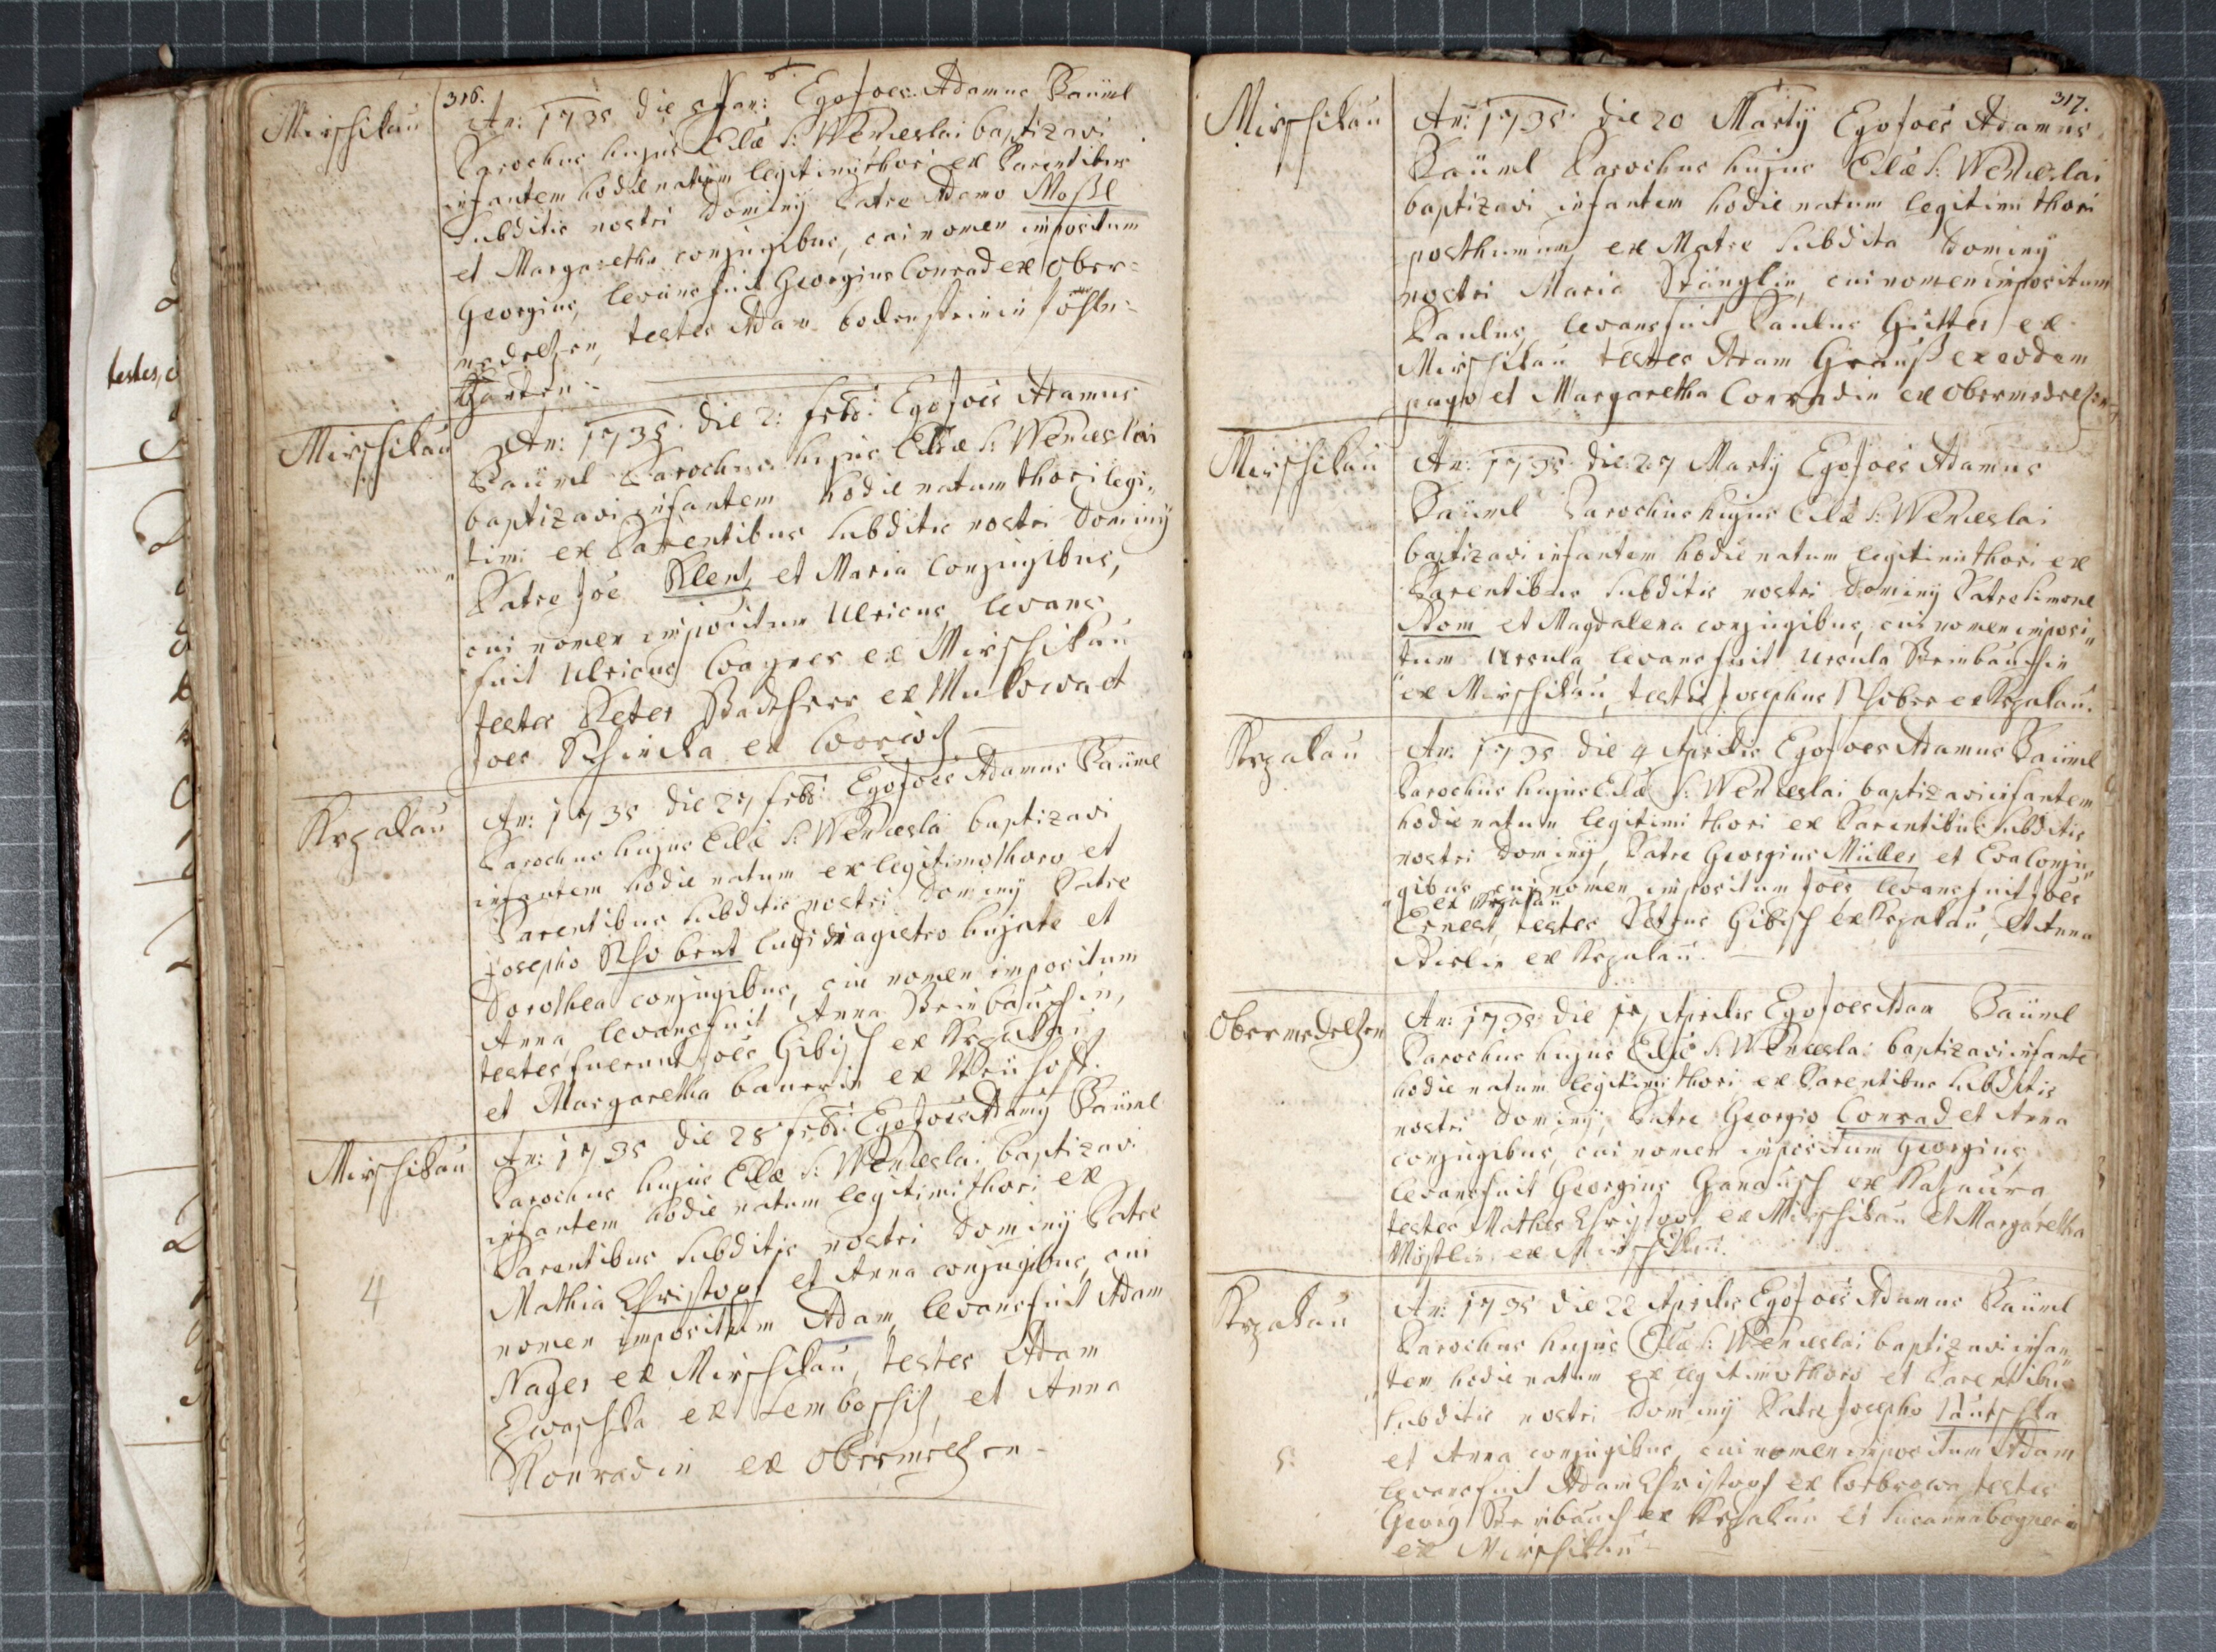 testes,
316.
Mirschikau
An: 1735 die Jan: Ego Joes Adamus Bäuml
Parochus hujus Eclæ S: Wenceslai baptizavi
infantem hodie natum legitimi thori ex Parentibus
subditis nostri Dominÿ Patre Adamo Moßl
et Margaretha conjugibus, cui nomen impositum
Georgius, levans fuit Georgius Conrad ex Ober-
medelzen, testes Adam bodenstein in
Garten.
Mirschikau
An: 1735 die 2: febr: Ego Joes Adamus
Bäuml Parochus hujus Eclæ S: Wenceslai
baptizavi infantem hodie natum thori legi-
timi ex Parentibus subditis nostri Dominÿ
Patre Joe Klent, et Maria Conjugibus,
cui nomen impositum Ulricus, levans
fuit Ulricus Wagner ex Mirschikau
testes Peter ex Mukowa et
Joes ex
Krzakau
An: 1735 die 27 febr: Ego Joes Adamus Bäuml
Parochus hujus Eclæ S: Wenceslai baptizavi
infantem hodie natum ex legitimo thoro et
Parentibus subditis nostri Dominÿ Patre
Josepho Schobent ludi magistro hujate et
Dorothea conjugibus, cui nomen impositum
Anna, levans fuit Anna Steinbauchin,
testes fuerunt Joes Gibisch ex Krzakau
et Margaretha bauerin ex Neühoff.
Mirschikau
An: 1735 die 28 febr: Ego Joes Adamÿ Bäuml
Parochus hujus Eclæ S: Wenceslai baptizavi
infantem hodie natum legitimi thori ex
Parentibus subditis nostri Dominÿ Patre
Mathia Christoph et Anna conjugibus, cui
nomen impositum Adam, levans fuit Adam
4
Nager ex Mirschikau, testes Adam
ex Semboschitz, et Anna
Konradin ex Obermelzen
317.
Mirschikau
An: 1735 die 20 Martÿ Ego Joes Adamus
Bäuml Parochus hujus Eclæ S: Wenceslai
baptizavi infantem hodie natum legitimi thori
posthumum, ex Matre subdita Dominÿ
nostri Maria Stänglin, cui nomen impositum
Paulus, levans fuit Paulus Gütter ex
Mirschikau testes Adam Grauß ex eodem
pago et Margaretha Conradin ex Obermedelzen
Mirschikau
An: 1735 die: 27 Martÿ Ego Joes Adamus
Bäuml Parochus hujus Eclæ S: Wenceslai
baptizavi infantem hodie natum legitimi thori ex
Parentibus subditis nostri Dominÿ Patre Simone
Adam et Magdalena conjugibus, cui nomen imposi-
tum Ursula, levans fuit Ursula Steinbauchin
ex Mirschikau, testis Josephus Schober ex Krzakau.
Krzakau
An: 1735 die 4 Aprilis Ego Joes Adamus Bäuml
Parochus hujus Eclæ S: Wenceslai baptizavi infantem
hodie natum legitimi thori ex Parentibus subditis
nostri Dominÿ, Patre Georgius Müller et Eva Conju-
gibus, cui nomen impositum Joes levans fuit Joes
ex Krzakau
Ernest, testes Petrus Gibisch ex Krzakau, et Anna
ex Krzakau.
Obermedelzen
An: 1735 die 17 Aprilis Ego Joes Adam Bäuml
Parochus hujus Eclæ S: Wenceslai baptizavi infantē
hodie natum legitimi thori ex Parentibus subditis
nostri Dominÿ, Patre Georgio Conrad et Anna
conjugibus, cui nomen impositum Georgius,
levans fuit Georgius Hanausch ex
testes Mathes Christoph ex Mirschikau et Margaretha
Mostlin ex Mirschikau.
Krzakau
An: 1735 die 22 Aprilis Ego Joes Adamus Bäuml
Parochus hujus Eclæ S: Wenceslai baptizavi infan-
tem hodie natum ex legitimo thoro et Parentibus
subditis nostri Dominÿ Patre Josepho
5:
et Anna conjugibus, cui nomen impositum Adam
levans fuit Adam Christoph ex testes
Georg Steinbauch ex Krzakau et Susanna bognerin
ex Mirschikau